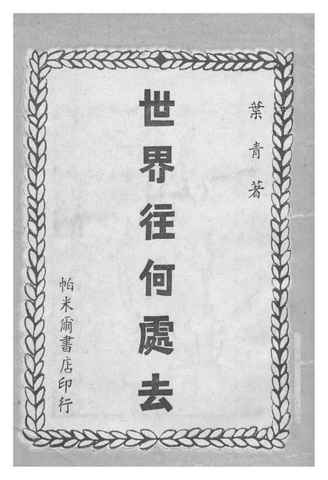 葉青著
世界往何處去
帕米爾書店印行